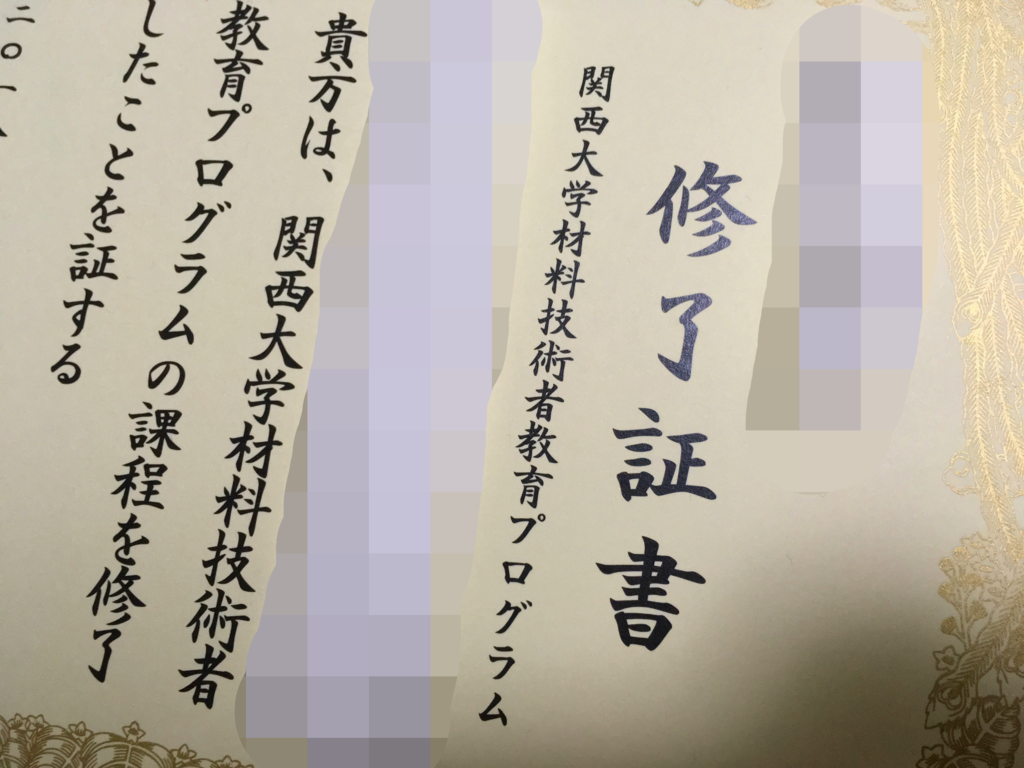 修了証書
関西大学材料技術者教育プログラム
貴万は、関西大学材料技術者
教育プログラムの課程を修了
したことを証する
二〇一八